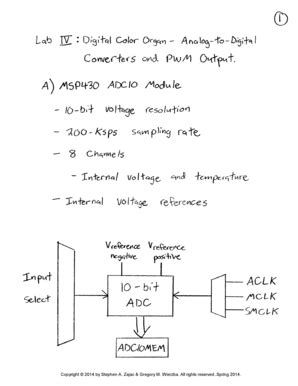 ①
Lab IV: Digital Color Organ - Analog-to-Digital
Converters and PWM Output.
A) MSP430 ADC10 Module
- 10-bit voltage resolution
- 200-ksps sampling rate
- 8 Channels
- Internal voltage and temperature
- Internal voltage references
Vreference negative
Vreference positive
Input Select
10-bit ADC
ACLK
MCLK
SMCLK
ADC10MEM
Copyright © 2014 by Stephen A. Zajac & Gregory M. Wierzba. All rights reserved. Spring 2014.